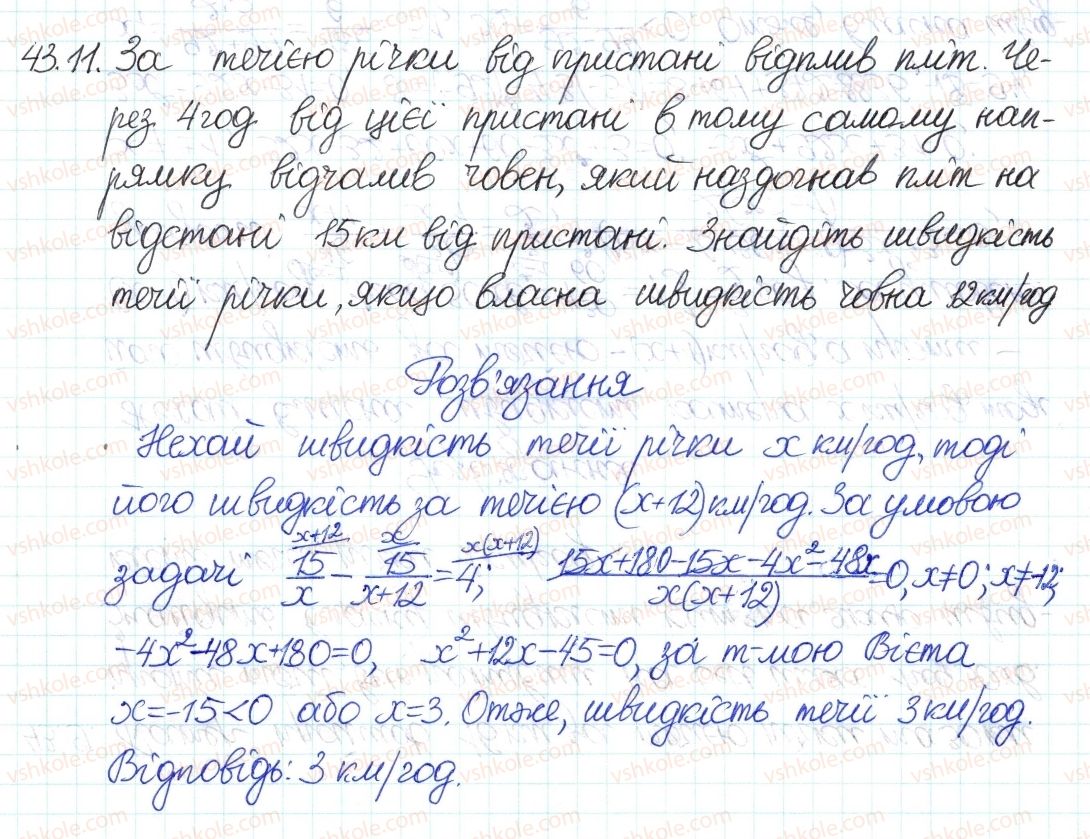 43.11. За течією річки від пристані відплив пліт. Че-
рез 4 год від цієї пристані в тому самому нап-
рямку відчалив човен, який наздогнав пліт на
відстані 15 км від пристані. Знайдіть швидкість
течії річки, якщо власна швидкість човна 12 км/год
Розв'язання
Нехай швидкість течії річки x км/год, тоді
його швидкість за течією (x+12) км/год. За умовою
задачі x+12/ 15/x - x/ 15/(x+12) = x(x+12)/ 4; (15x+180-15x-4x²-48x)/(x(x+12))=0, x≠0; x≠-12;
-4x²-48x+180=0, x²+12x-45=0, за т-мою Вієта
x=-15<0 або x=3. Отже, швидкість течії 3 км/год.
Відповідь: 3 км/год.